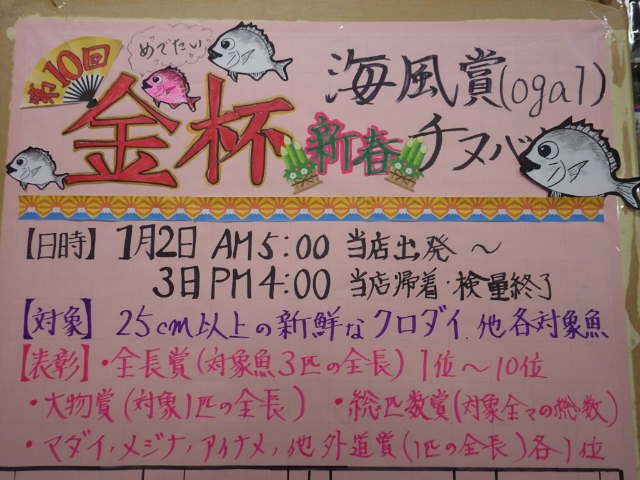 第10回
めでたい
海風賞(oga1)
金杯 新春 チヌバ
【日時】 1月2日 AM5:00 当店出発 ～
3日 PM4:00 当店帰着・検量終了
【対象】 25cm以上の新鮮なクロダイ、他各対象魚
【表彰】・全長賞(対象魚3匹の全長) 1位～10位
・大物賞(対象1匹の全長) ・総匹数賞(対象全ての総数)
・マダイ、メジナ、アイナメ、他 外道賞(1匹の全長)各1位